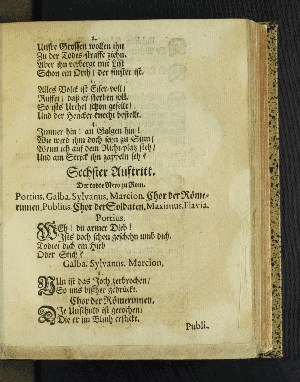 2.
Unsre Grossen wollen ihn
Zu der Todes-straffe ziehn.
Aber ihn verbergt mit List
Schon ein Orth / der finster ist.
3.
Alles Volck ist Eifer-voll /
Ruffet / daß er sterben soll.
So ists Urthel schon gefellt /
Und der Hencker-knecht bestellt.
4.
Immer hin! an Galgen hin!
Wie werd ihm doch seyn zu Sinn /
Wenn ich auf dem Richt-platz steh /
Und am Strick ihn zappeln seh?
Sechster Auftritt.
Der todte Nero zu Rom.
Portius. Galba. Sylvanus. Marcion. Chor der Röme-
rinnen. Publius. Chor der Soldaten. Maximus. Flavia.
Portius.
WEh! du armer Dieb!
Ists doch schon geschehn umb dich.
Todtet dich ein Hieb
Oder Stich?
Galba. Sylvanus. Marcion.
1.
NUn ist das Joch zerbrochen /
So uns bißher gedrückt.
Chor der Römerinnen.
DIe Unschuld ist gerochen /
Die er im Bluth erstickt.
Publi-